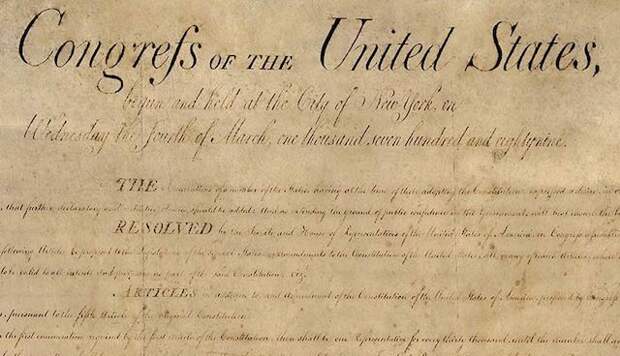 Congreſs OF THE United States,
begun and held at the City of New-York, on
Wednesday the Fourth of March, one thousand seven hundred and eighty nine.
THE Conventions of a number of the States having at the time of their adopting the Constitution, expressed a desire, in
that further declaratory and restrictive clauses should be added: And as extending the ground of public confidence in the Government, will best insure the
RESOLVED by the Senate and House of Representatives of the United States of America, in Congress
following Articles be proposed to the Legislatures of the several States, as amendments to the Constitution of the United States, all, or any of which Articles,
to be valid to all intents and purposes, as part of the said Constitution; viz.
ARTICLES in addition to, and amendment of the Constitution of the United States of America, proposed by Congress
, pursuant to the fifth Article of the original Constitution.
the first enumeration required by the first Article of the Constitution, there shall be one Representative for every thirty thousand, until the number shall